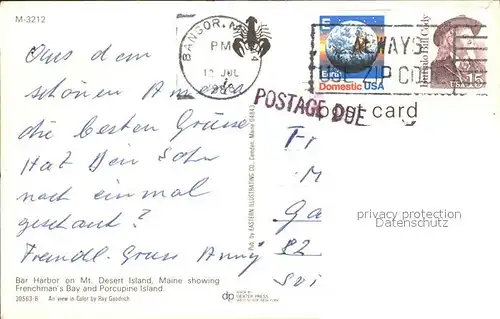 M-3212
BANGOR, M
PM
12 JUL
E
Earth
Domestic USA
ALWAYS
USE ZIP CODE
Buffalo Bill Cody
USA 15
POSTAGE DUE
post card
Aus dem
schönen Amerika
die besten Grüsse
Hat Dein Sohn
noch einmal
geschaut?
Freundl. Gruss Anny
Fr
M
Ga
82
Svi
privacy protection
Datenschutz
Pub. by EASTERN ILLUSTRATING CO., Camden, Maine 04843
Bar Harbor on Mt. Desert Island, Maine showing
Frenchman's Bay and Porcupine Island.
38563-B Air view in Color by Ray Goodrich
dp
DEXTER PRESS